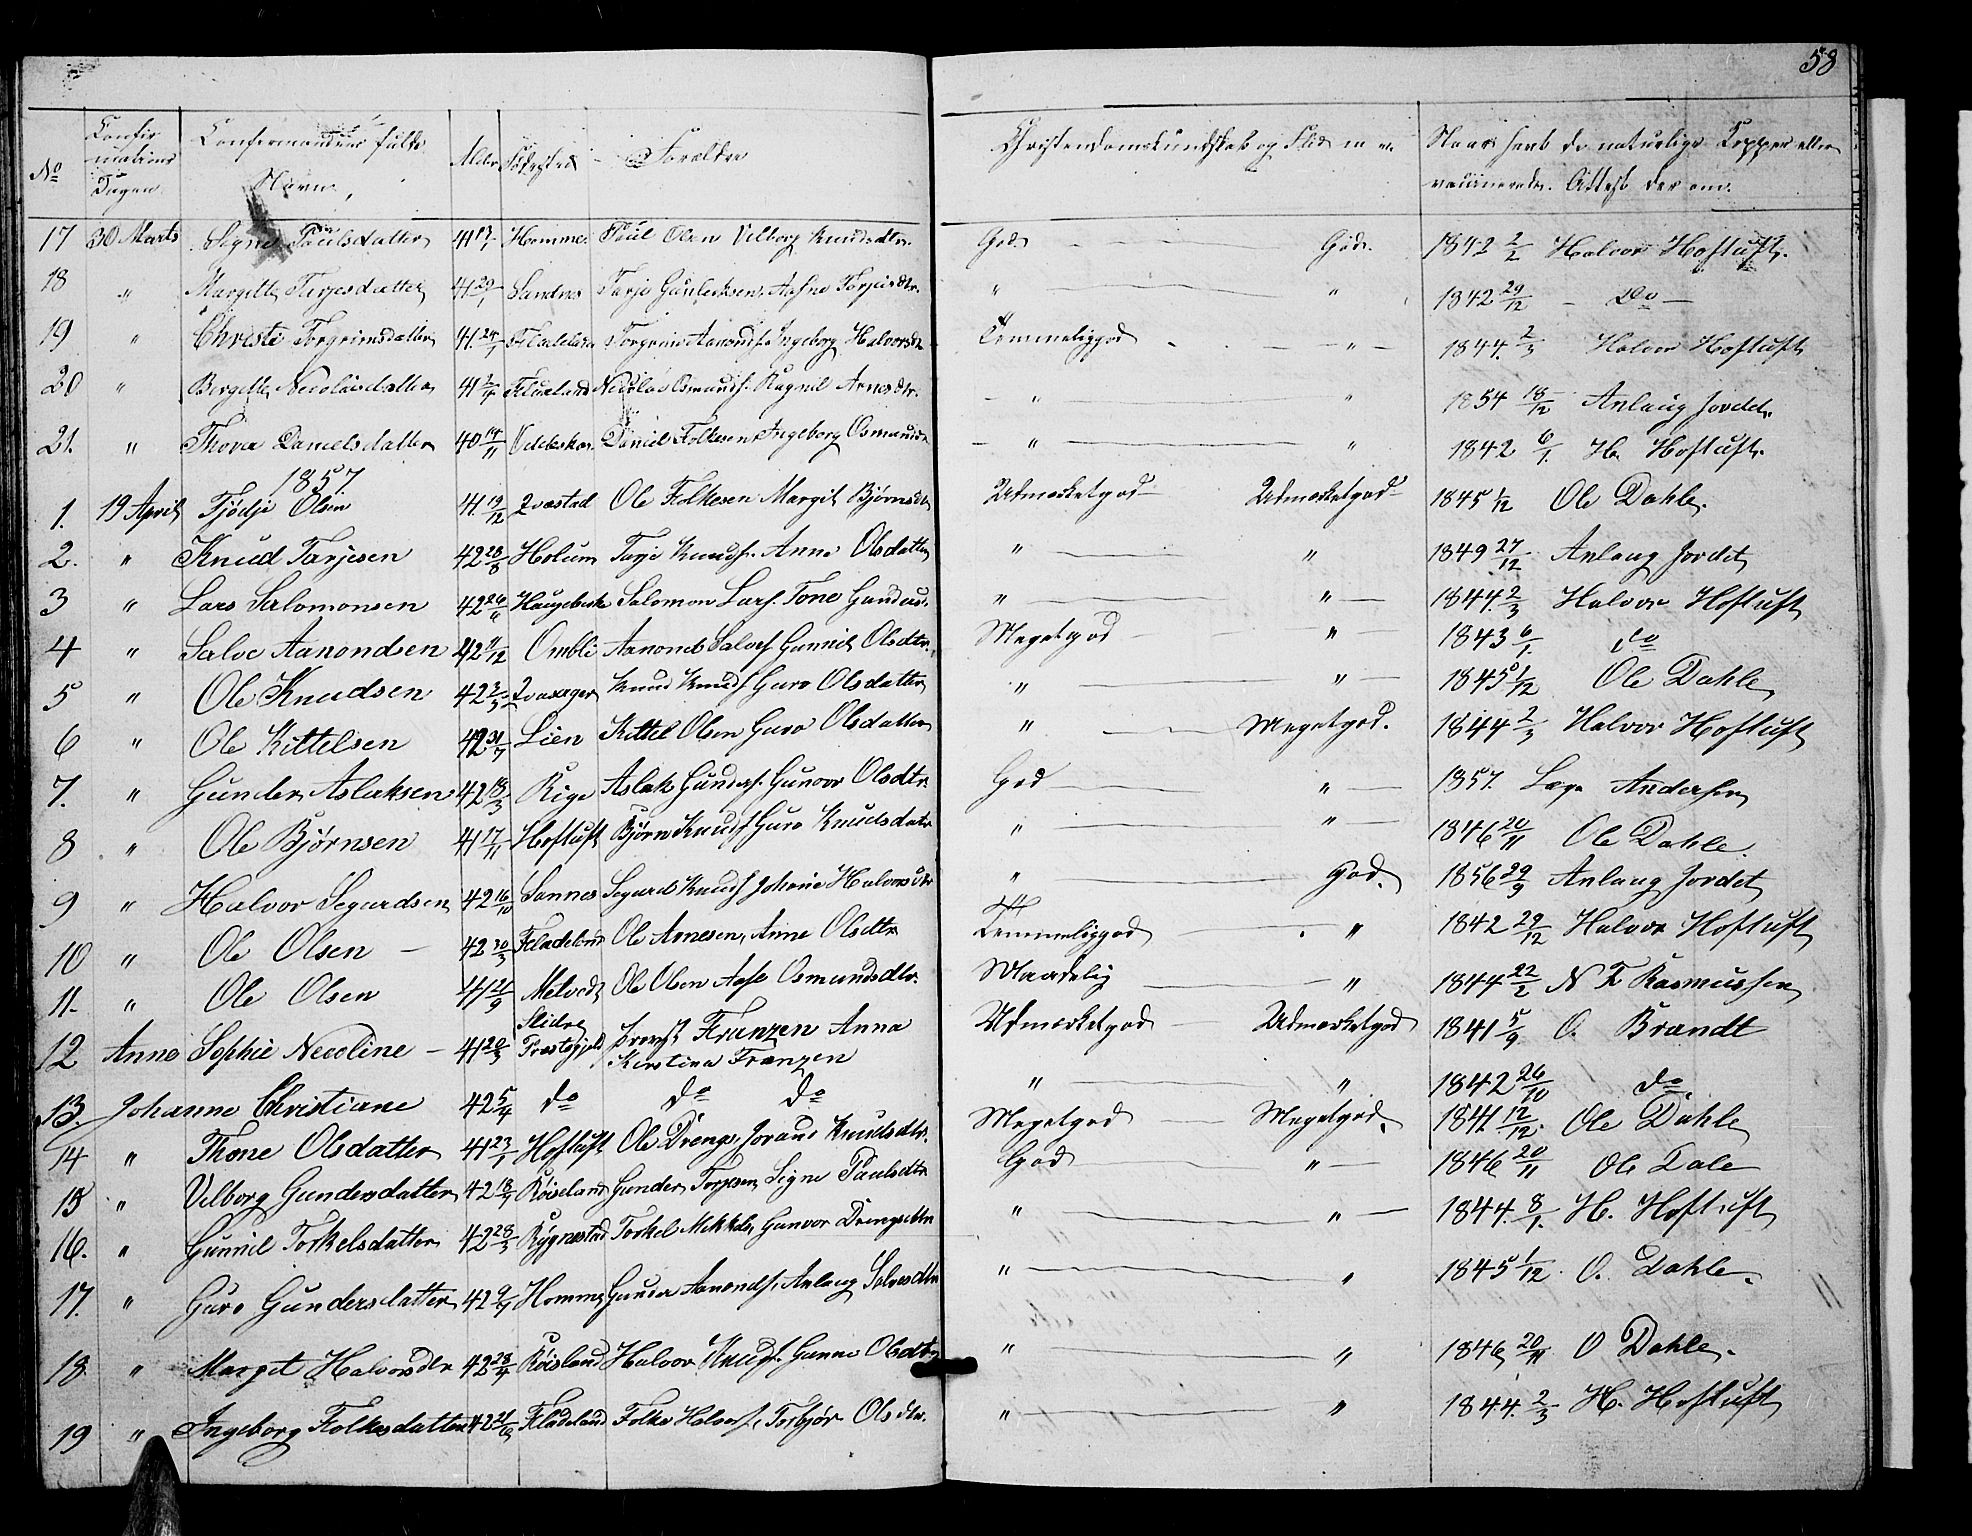 58
No Confirmations Dagen Confirmandens fulde Navn Alder Fødested Forældre Christendomskundskab og Flid m. v. Naar havt de naturlige Kopper eller vaccinerede. Attest derom.
17 30 Marts Signe Paulsdatter 41 Homme Paul Olsen Vilborg Knudsdtr. God God. 1842 2/2 Halvor Hoftuft.
18 " Margitte Terjesdatter 41 29/1 Sandnes Tarje Gunleksen, Torjusdtr. " " 1842 29/12 - Do -
19 " Christi Torgrimsdatter 41 24/1 Fladeland Torgrim Aanonds. Ingeborg Halvorsdtr Temmeliggod " 1844 2/3 Halvor Hoftuft
20 " Birgitte Nicolaisdatter 41 Flateland Nicolai Osmunds. Ragnil Arnesdtr. " " 1854 18/12 Anlaug Jordet.
21. " Thora Danielsdatter 40 14/11 Daniel Folkesen Ingeborg Osmundsd " " 1842 6/1. H. Hoftuft.
1857
1. 19 April Tjødje Olsen 41. 19/12 Qvæstad Ole Folkesen Margit Bjørnsdtr Udmærketgod Udmærketgod 1845 1/12 Ole Dahle.
2. " Knud Tarjesen 42 28/8 Holum Tarje Knuds. Anne Olsdatter " " 1849 27/12 Anlaug Jordet
3 " Lars Salomonsen 42 Haugebirke Salomon Lars. Tone Gundersd. " " 1844. 2/3 Halvor Hoftuft
4 " Salve Aanondsen 42 11/12 Ombli Aanond Salves. Gunnil Olsdtr. Megetgod " 1843 6/1. do
5 " Ole Knudsen 42 2/5 Qvasager Knud Knuds. Guro Olsdatter " " 1845 1/12 Ole Dahle
6 " Ole Kittelsen 42 31/7 Lien Kittel Olsen Guro Olsdatter " Megetgod. 1844 2/3 Halvor Hoftuft
7. " Gunder Aslaksen 42 18/3 Rige Aslak Gunders. Gunvor Olsdtr. God " 1857. Læge Andersen
8 " Ole Bjørnsen 41 17/11 Hoftuft Bjørn Knuds. Guro Knudsdatr " " 1846 20/11 Ole Dahle.
9 " Halvor Segurdsen 42 16/10 Sannes Segurd Knuds. Johanne Halvorsdtr " God. 1856 29/9 Anlaug Jordet
10 " Ole Olsen 42 30/3 Fladeland Ole Arnesen, Anne Olsdtr Temmeliggod " 1842 29/12 Halvor Hoftuft
11. " Ole Olsen 41 21/9 Melvedt Ole Olsen Aase Osmundsdtr. Maadelig " 1844 22/2 N T Rasmussen
12 Anne Sophie Necoline 41 20/3 Slidre Præstegjeld Provst Franzen Anna Kirstina Franzen Udmærketgod Udmærketgod 1841 5/9 O. Brandt
13. Johanne Christiane 42 5/4 do do do " " 1842 26/10 do
14 " Thone Olsdatter 41 23/1 Hoftuft Ole Drengs. Jorand Knudsdtr. Megetgod Megetgod. 1841 12/12. Ole Dahle
15 " Vilborg Gundersdatter 42 18/4 Røiseland Gunder Torjesen Signe Paulsdtr God " 1846 20/11 Ole Dale
16. " Gunnil Torkelsdatter 42 28/3 Rygnestad Torkel Mikkels. Gunvor Drengsdtr " " 1844. 8/1. H. Hoftuft
17. " Guro Gundersdatter 42 9/4 Homme Gunder Aanonds. Anlaug Salvesdtr " " 1845 1/12. O. Dahle.
18. " Margit Halvorsdtr 42 28/4 Røisland Halvor Knuds. Gunne Olsdtr " " 1846 20/11 O Dahle.
19 " Ingeborg Folkesdatter 42 Fladeland Folke Halvors. Torbjør Olsdtr. " " 1844. 2/3 H. Hoftuft